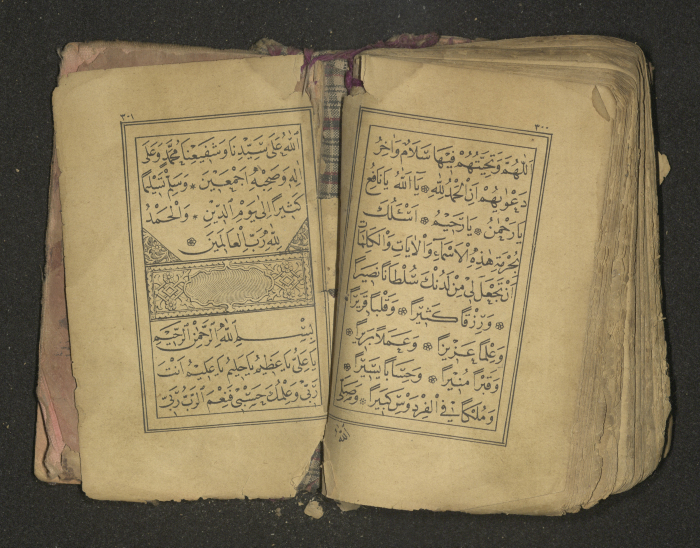 ٣٠٠
اللهم وتحيتهم فيها سلام واخر
دعويهم ان الحمد لله يا الله يا نافع
يا رحمن يا رحيم اسئلك
بحرمة هذه الاسماء والايات والكلمات
ان تجعل لى من لدنك سلطانا نصيرا
ورزقا كثيرا وقلبا قريرا
وعلما عزيزا وعملا بريرا
وقبرا منيرا وحسابا يسيرا
وملكا فى الفردوس كبيرا وصلى
الله
٣٠١
الله على سيدنا وشفيعنا محمد وعلى
اله وصحبه اجمعين وسلم تسليما
كثيرا الى يوم الدين والحمد
لله رب العالمين
بسم الله الرحمن الرحيم
يا على يا عظيم يا حليم يا عليم انت
ربى وعلمك حسبى فنعم الرب ربى